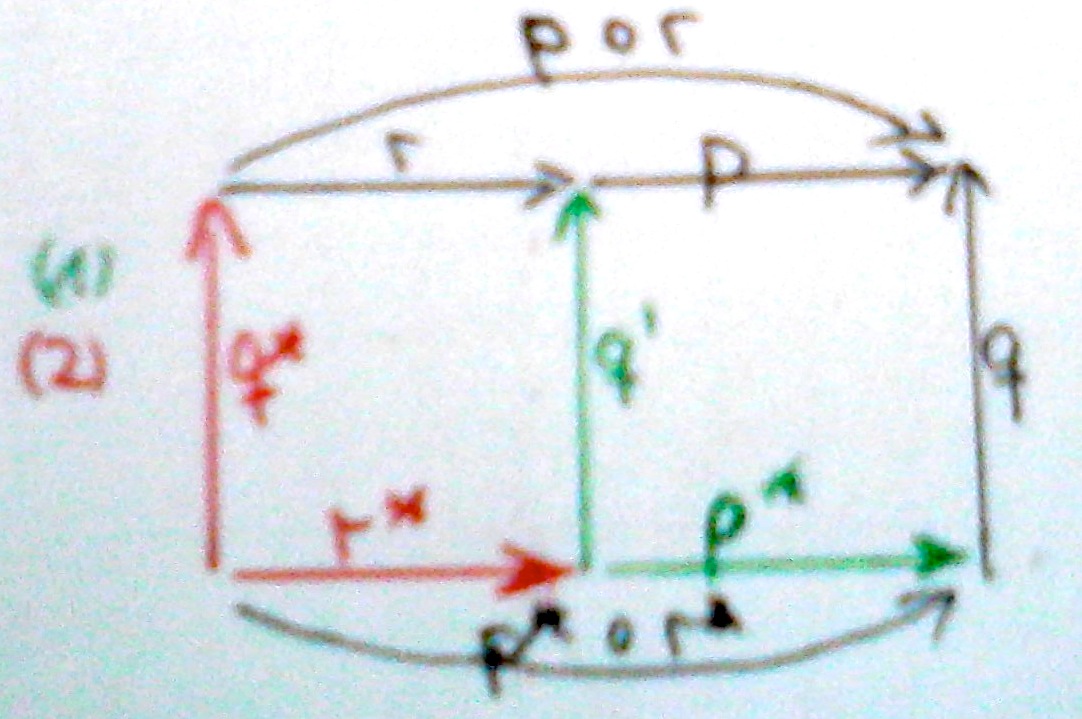 p o r
r
p
(1)
(2)
q*
q'
q
r*
p*
p* o r*